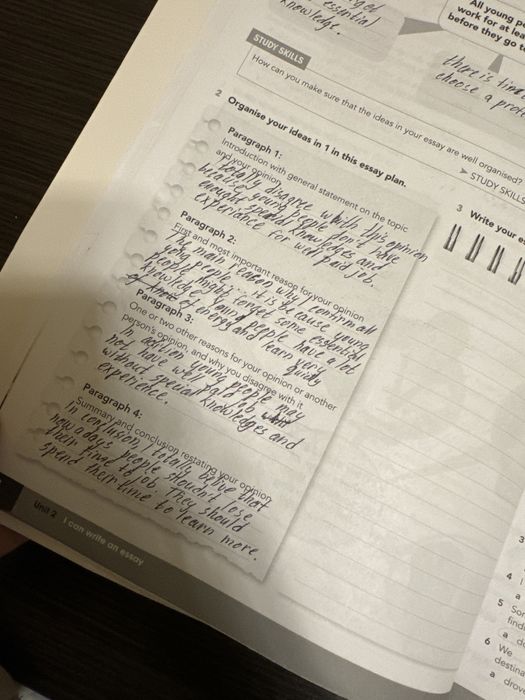 essential
knowledge.
All young p
work for at lea
before they go t
there is time
choose a prof
STUDY SKILLS
How can you make sure that the ideas in your essay are well organised?
STUDY SKILLS
2 Organise your ideas in 1 in this essay plan.
Paragraph 1:
Introduction with general statement on the topic
and your opinion
I totally disagree whith this opinion
because young people don't have
enought special knowledges and
experiance for well paid job.
Paragraph 2:
First and most important reason for your opinion
The main reason why I confirm all
yong people.. it is because young
people might forget some essential
knowledge. Young people have a lot
of energy and learn very
quikly
Paragraph 3:
One or two other reasons for your opinion or another
person's opinion, and why you disagree with it
In addition, young people may
not have well paid job
without special knowledges and
experience.
Paragraph 4:
Summary and conclusion restating your opinion
In conclusion, I totally belive that
now a days people shoudn't lose
their time to job. They should
spend their time to learn more.
Unit 2 I can write an essay
3 Write your e
3
4 I
a
5 Sor
find
a de
6 We
destina
a drov